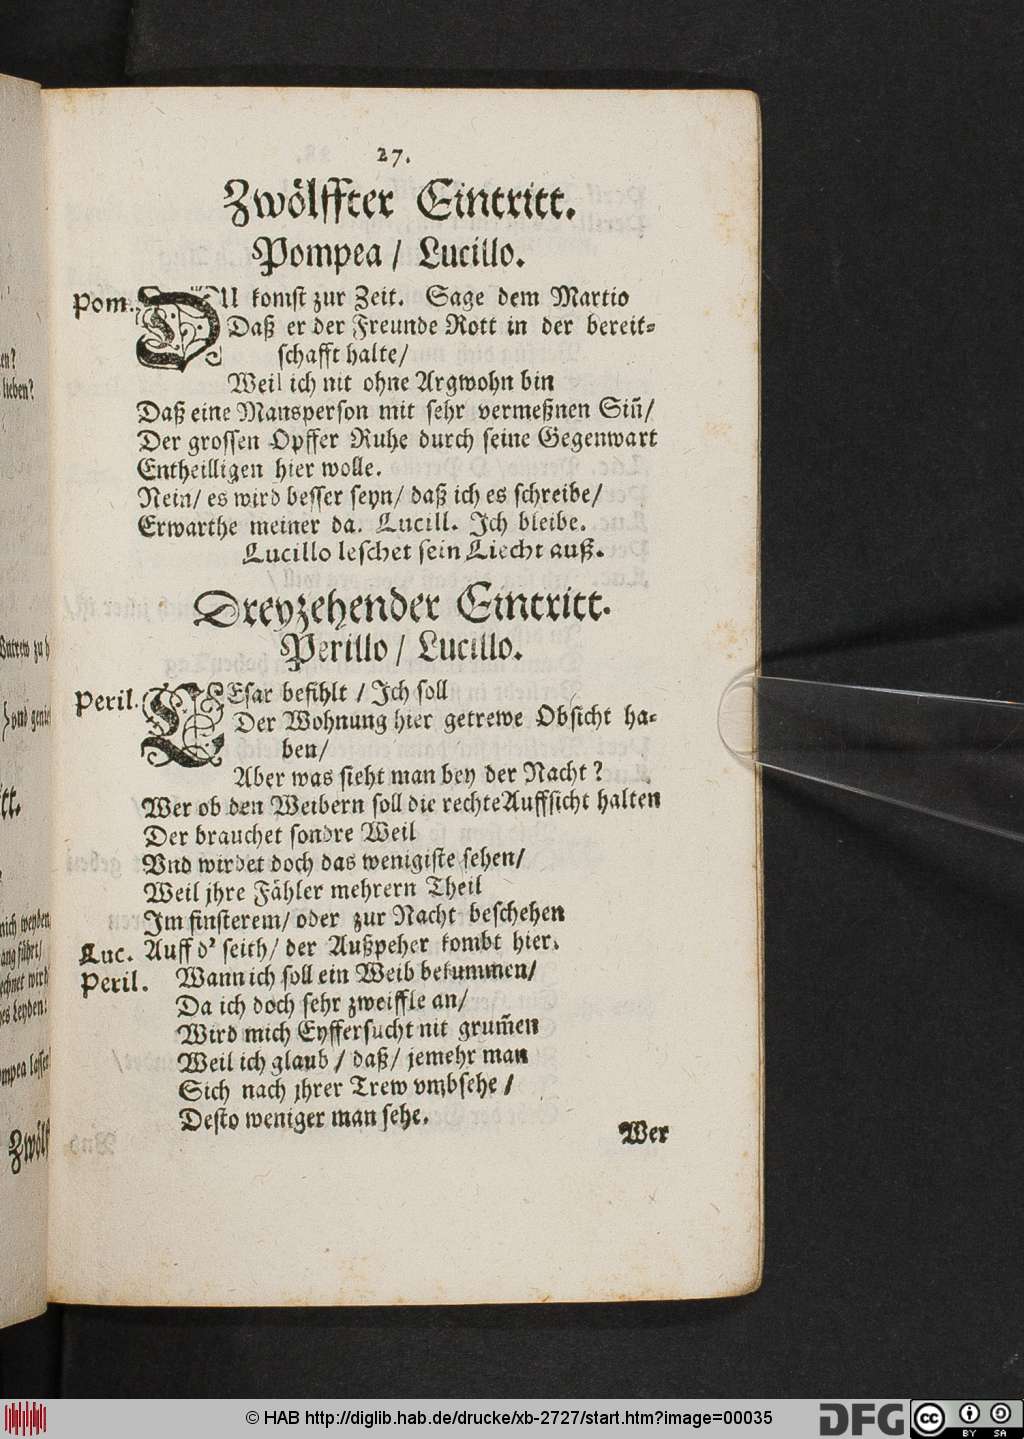 27.
Zwölffter Eintritt.
Pompea / Lucillo.
Pom. DU komst zur Zeit. Sage dem Martio
Daß er der Freunde Rott in der bereit-
schafft halte/
Weil ich nit ohne Argwohn bin
Daß eine Mansperson mit sehr vermeßnen Siñ/
Der grossen Opffer Ruhe durch seine Gegenwart
Entheilligen hier wolle.
Nein/ es wird besser seyn/ daß ich es schreibe/
Erwarthe meiner da. Lucill. Ich bleibe.
Lucillo leschet sein Liecht auß.
Dreyzehender Eintritt.
Perillo / Lucillo.
Peril. CEsar befihlt / Ich soll
Der Wohnung hier getrewe Obsicht ha-
ben/
Aber was sieht man bey der Nacht?
Wer ob den Weibern soll die rechte Auffsicht halten
Der brauchet sondre Weil
Vnd wirdet doch das wenigiste sehen/
Weil jhre Fähler mehrern Theil
Im finsterem/ oder zur Nacht beschehen
Luc. Auff d' seith/ der Außpeher kombt hier.
Peril. Wann ich soll ein Weib bekummen/
Da ich doch sehr zweiffle an/
Wird mich Eyffersucht nit grum̃en
Weil ich glaub / daß/ jemehr man
Sich nach jhrer Trew vmbsehe /
Desto weniger man sehe.
Wer
lieben?
Vntrew zu
tt.
mich weyden
ang führt/
echnet wird
es Leyden:
mpea lassen
Zwölf
© HAB http://diglib.hab.de/drucke/xb-2727/start.htm?image=00035
DFG
cc
BY SA